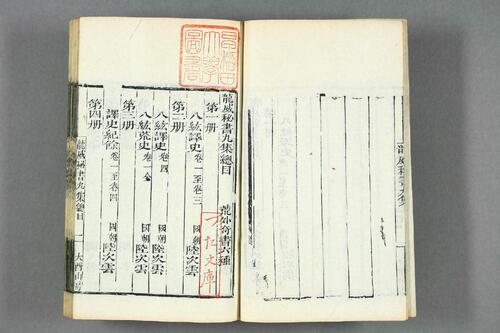 龍威秘書九集總目
荒外奇書六種
第一册
八紘譯史卷一至卷三
國朝陸次雲
第二册
八紘譯史卷四
八紘荒史卷全
國朝陸次雲
第三册
譯史紀餘卷一至卷四
國朝陸次雲
第四册
龍威秘書九集總目
一
大酉山房
早稲田大學圖書